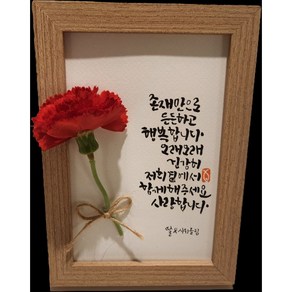 존재만으로
든든하고
행복합니다.
오래오래
건강히
저희곁에서
함께해주세요
사랑합니다.